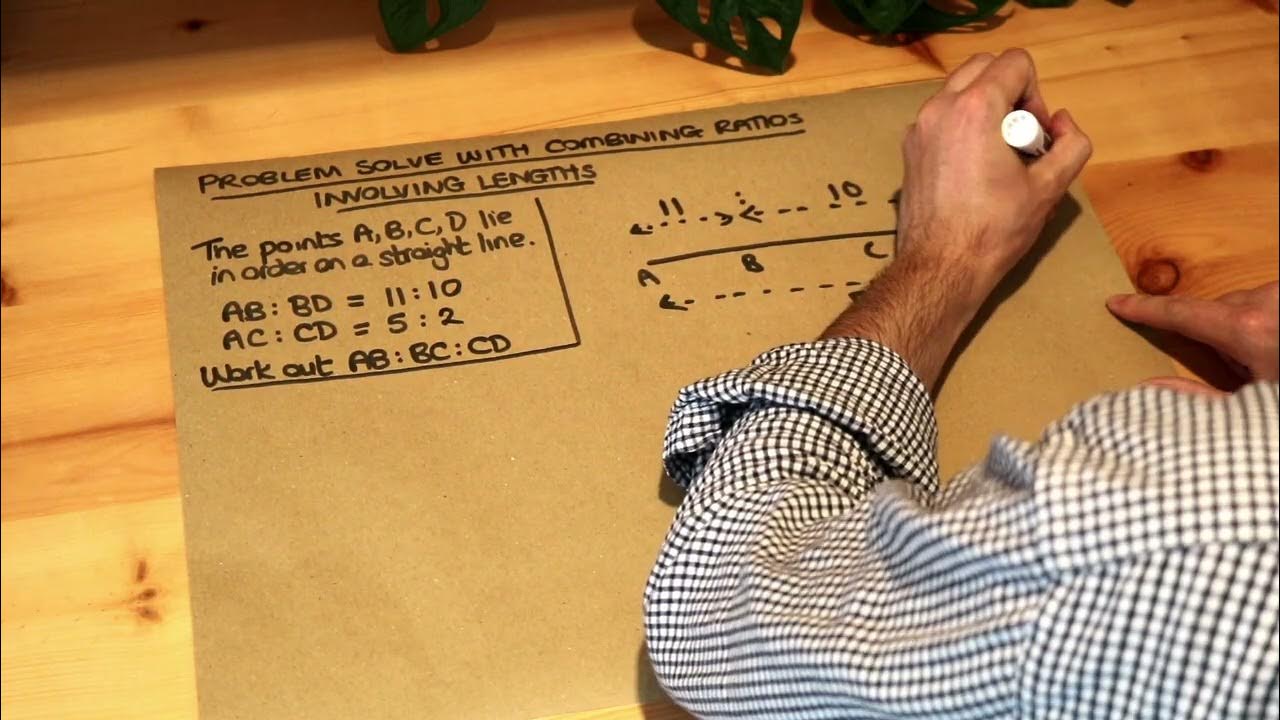 PROBLEM SOLVE WITH COMBINING RATIOS
INVOLVING LENGTHS
The points A, B, C, D lie
in order on a straight line.
AB : BD = 11 : 10
AC : CD = 5 : 2
Work out AB : BC : CD
11 : 10
A B C